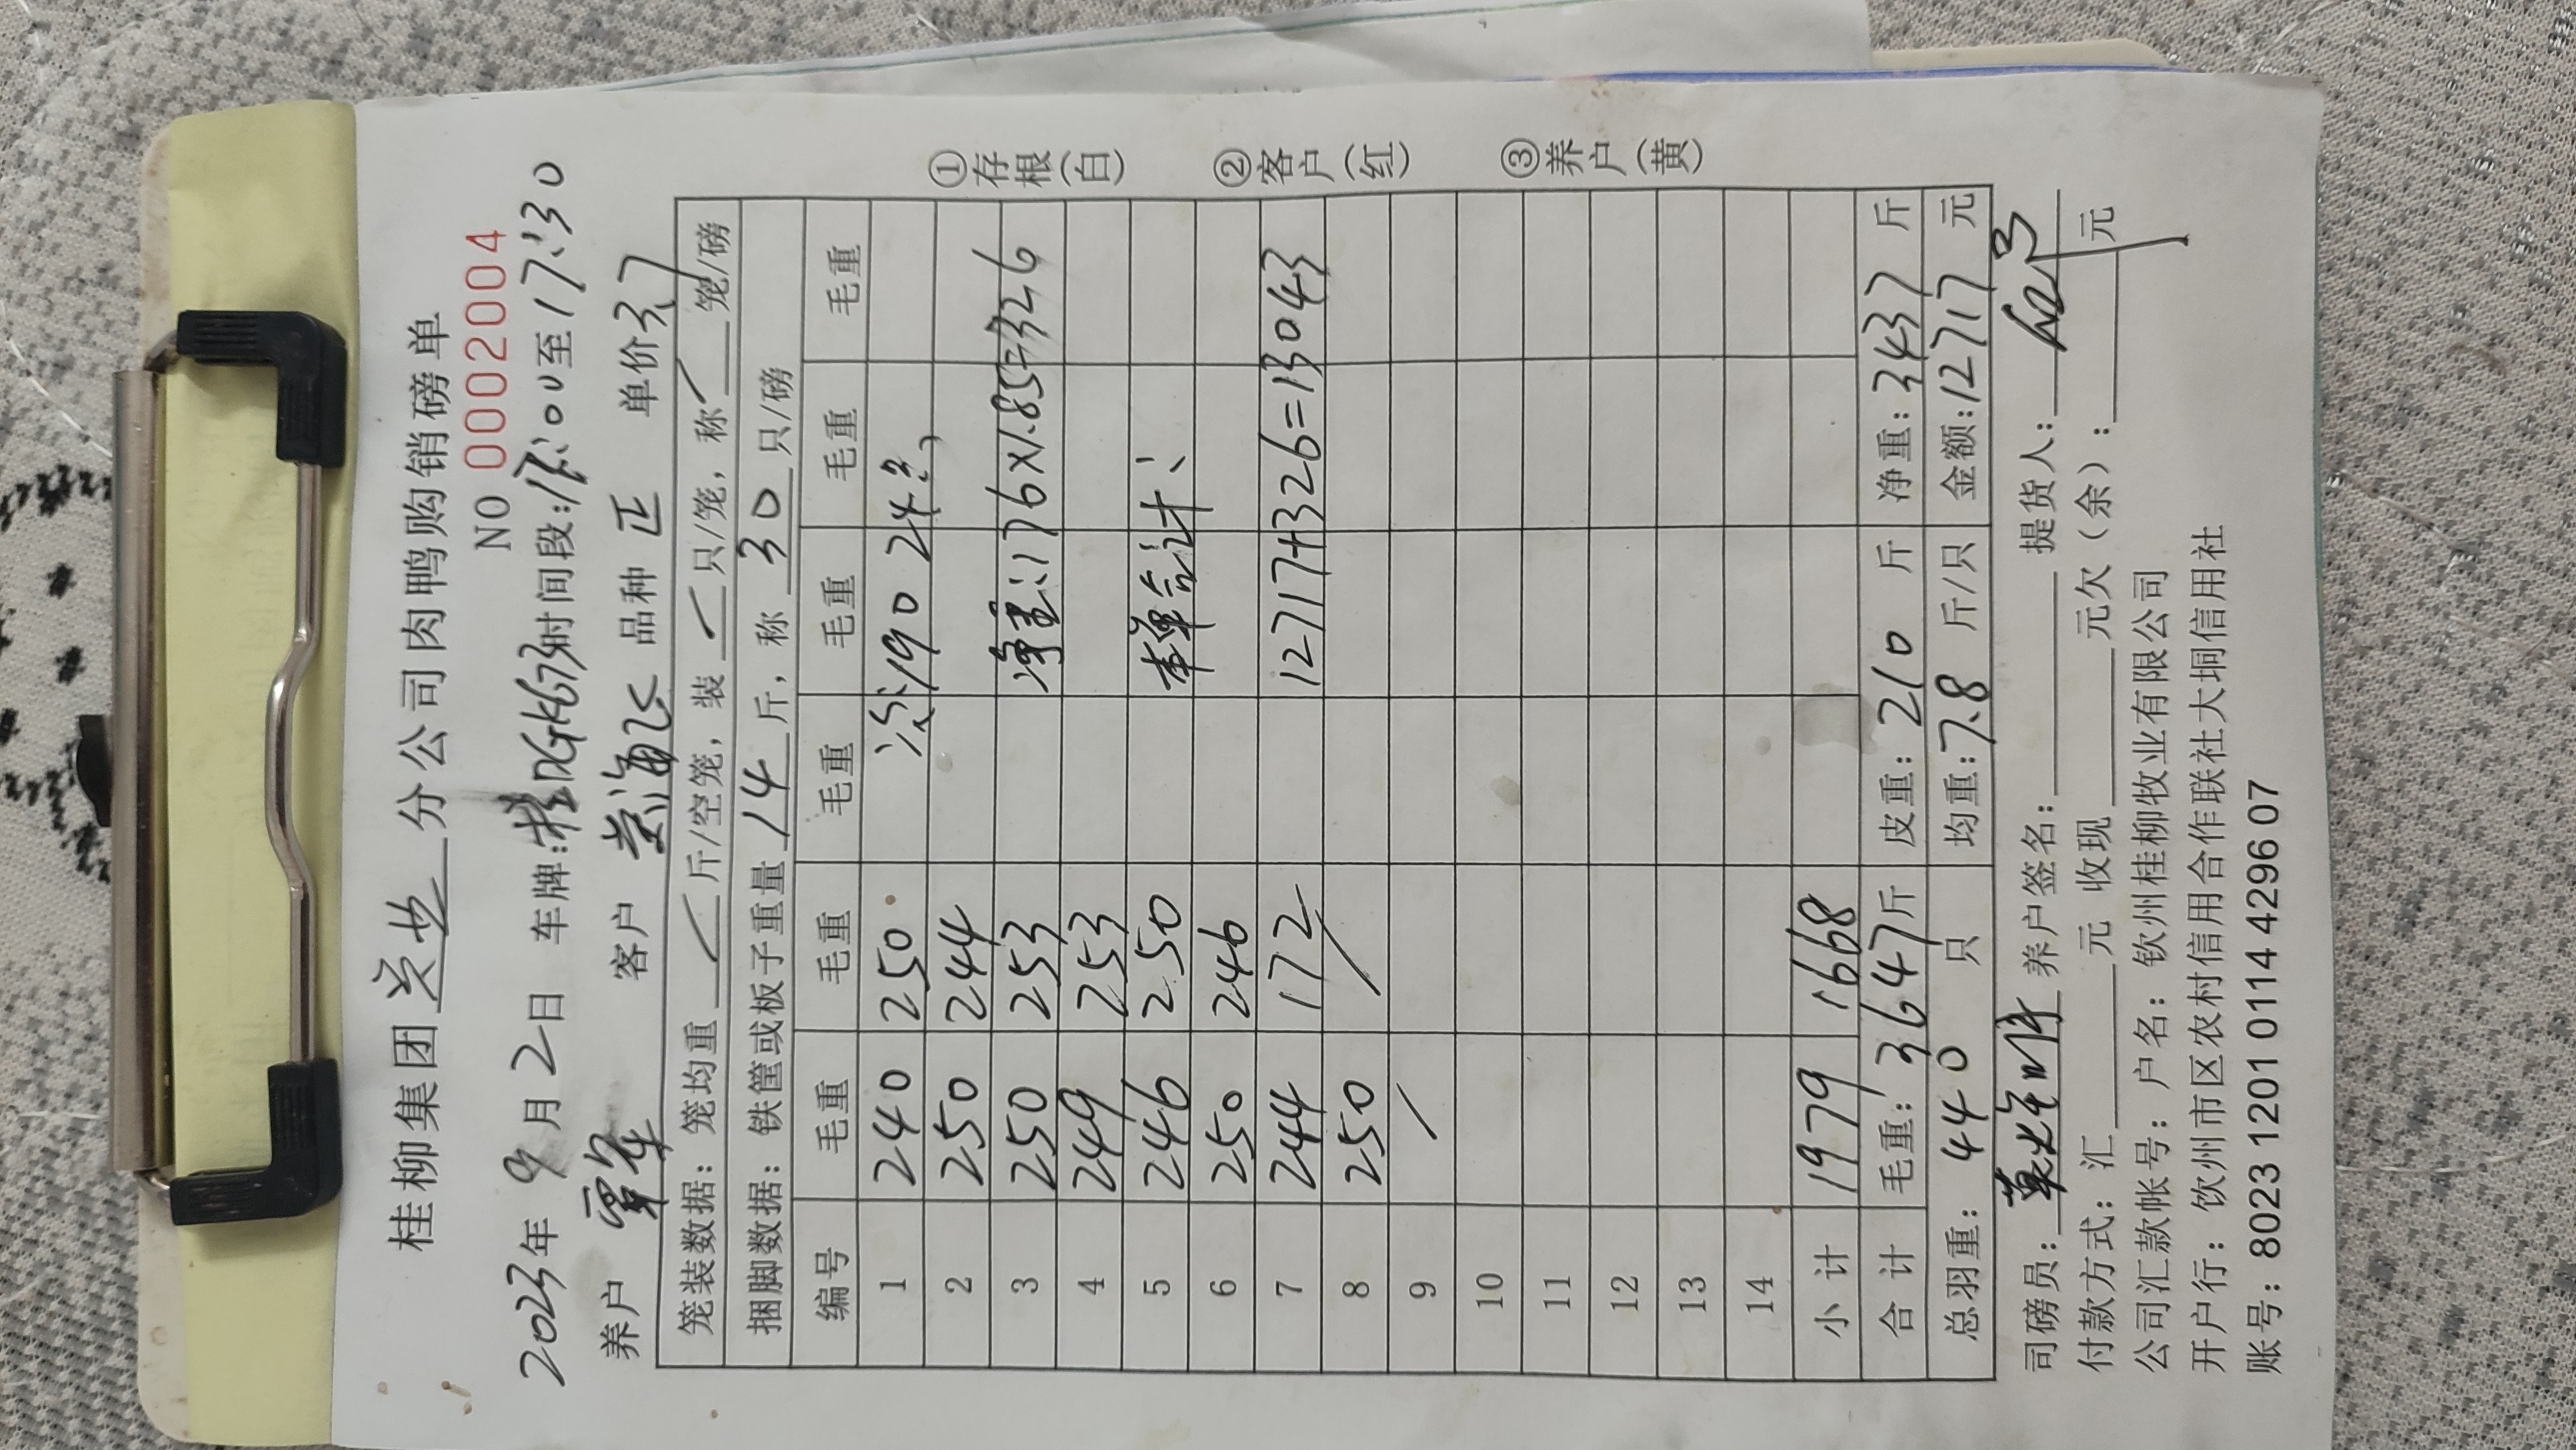 桂柳集团 分公司肉鸭购销磅单
NO 0002004
2023年 9月 2日 车牌:桂DGK673时间段:17:00至17:30
养户 覃军 客户 海飞 品种 正 单价 3.7
笼装数据：笼均重 斤/空笼，装 只/笼，称 笼/磅
捆脚数据：铁筐或板子重量 14 斤，称 30 只/磅
编号 毛重 毛重 毛重 毛重 毛重 毛重
1 240 250 次:190 24只
2 250 244
3 250 253 净重:176×1.85=326
4 249 253
5 246 250 本单合计:
6 250 246
7 244 172 12717+326=13043
8 250
9
10
11
12
13
14
小 计 1979 1668
合 计 毛重: 3647斤 皮重: 210 斤 净重: 3437 斤
总羽重： 440 只 均重: 7.8 斤/只 金额: 12717 元
司磅员: 养户签名: 提货人:
付款方式：汇 元 收现 元欠（余）: 元
公司汇款帐号：户名：钦州桂柳牧业有限公司
开户行：饮州市区农村信用合作联社大垌信用社
账号：8023 1201 0114 4296 07
①存根（白）
②客户（红）
③养户（黄）